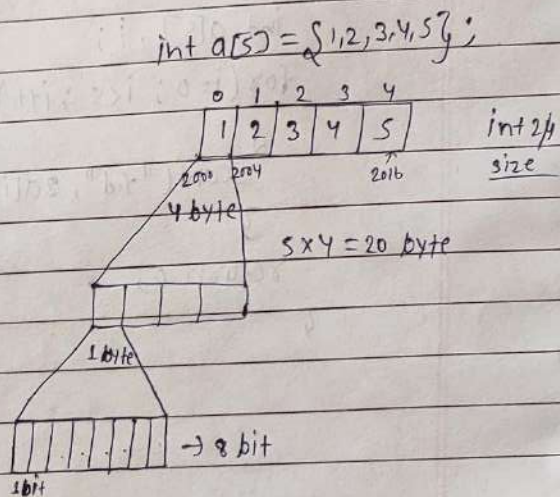 int a[5] = {1,2,3,4,5};
0 1 2 3 4
1 2 3 4 5
int 2/4
size
2000 2004 2016
4 byte
5 x 4 = 20 byte
1 byte
→ 8 bit
1bit